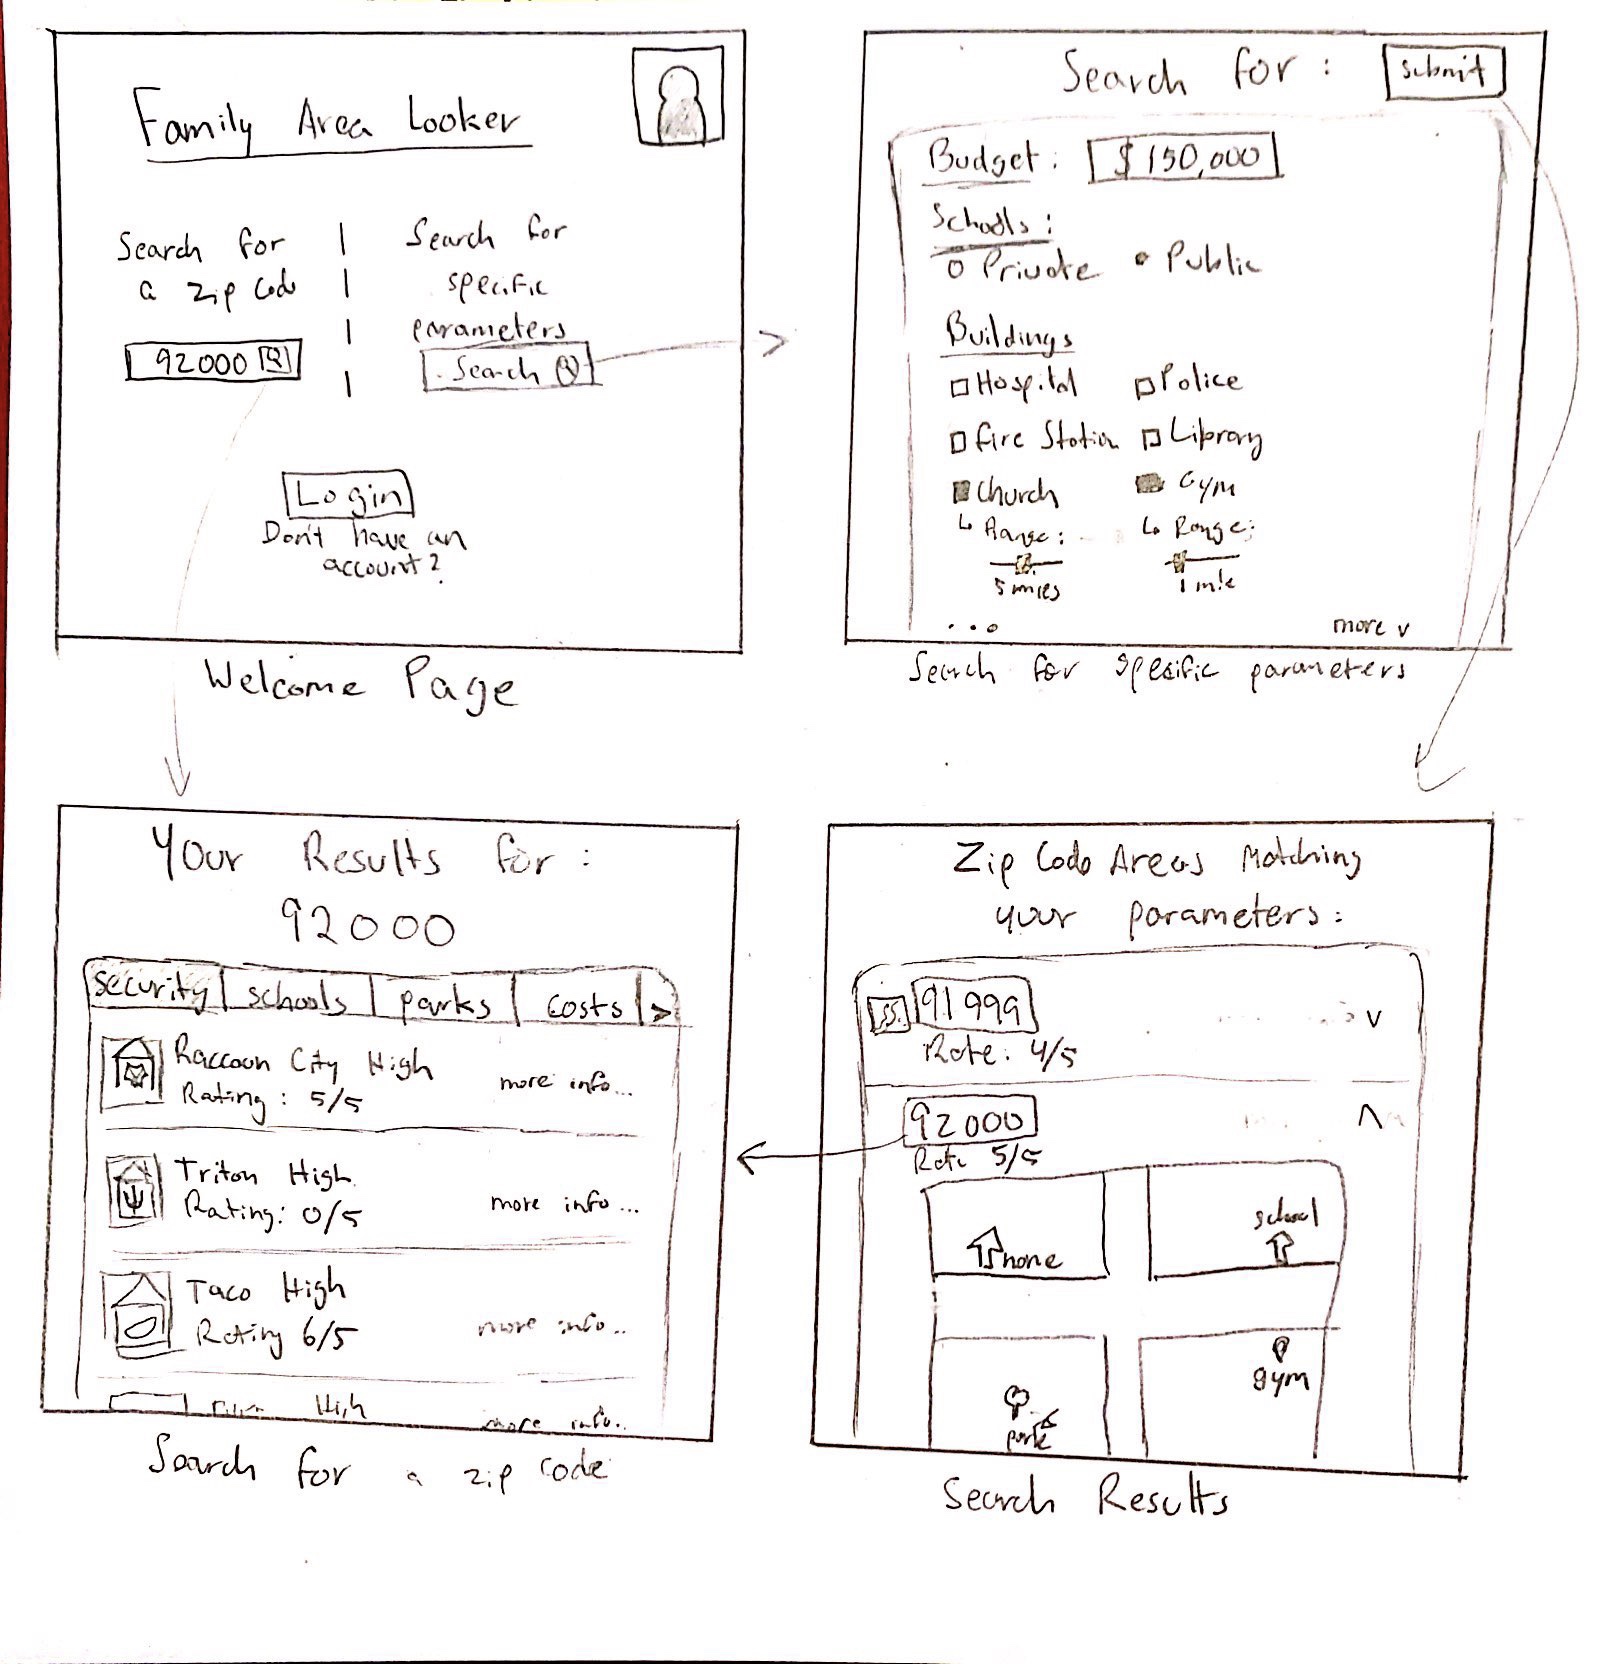 Family Area Looker
Search for
a zip code
92000
Search for
specific
parameters
Search
Login
Don't have an
account?
Welcome Page
Search for :
submit
Budget : $150,000
Schools :
Private Public
Buildings
Hospital Police
Fire Station Library
Church Gym
Range : Range:
5 miles 1 mile
... more v
Search for specific parameters
Your Results for :
92000
security schools parks costs >
Raccoon City High
Rating : 5/5
more info...
Triton High
Rating: 0/5
more info...
Taco High
Rating 6/5
more info..
High
more info..
Search for a zip code
Zip Code Areas Matching
your parameters:
91999 v
Rate: 4/5
92000 ^
Rate 5/5
school
home
gym
park
Search Results